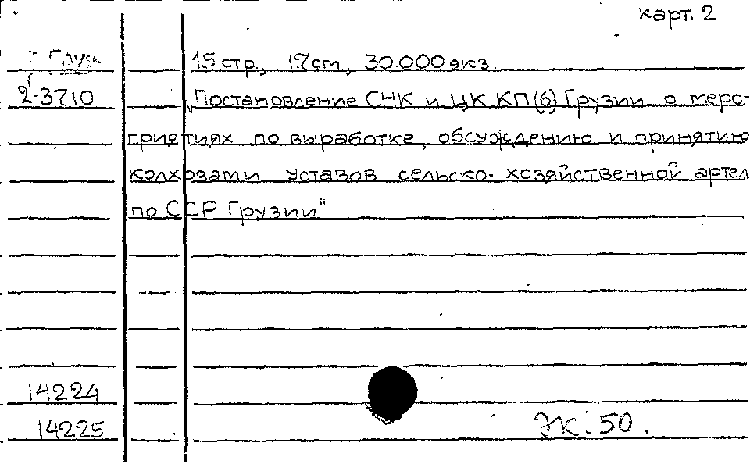 карт. 2
Груз 15 стр., 17 cm, 30.000 экз.
2-3710 „Постановление СНК и ЦК КП(б) Грузии о меро-
приятиях по выработке, обсуждению и принятию
колхозами уставов сельско-хозяйственной артел
по ССР Грузии"
14224
14225 ЭК. 50.